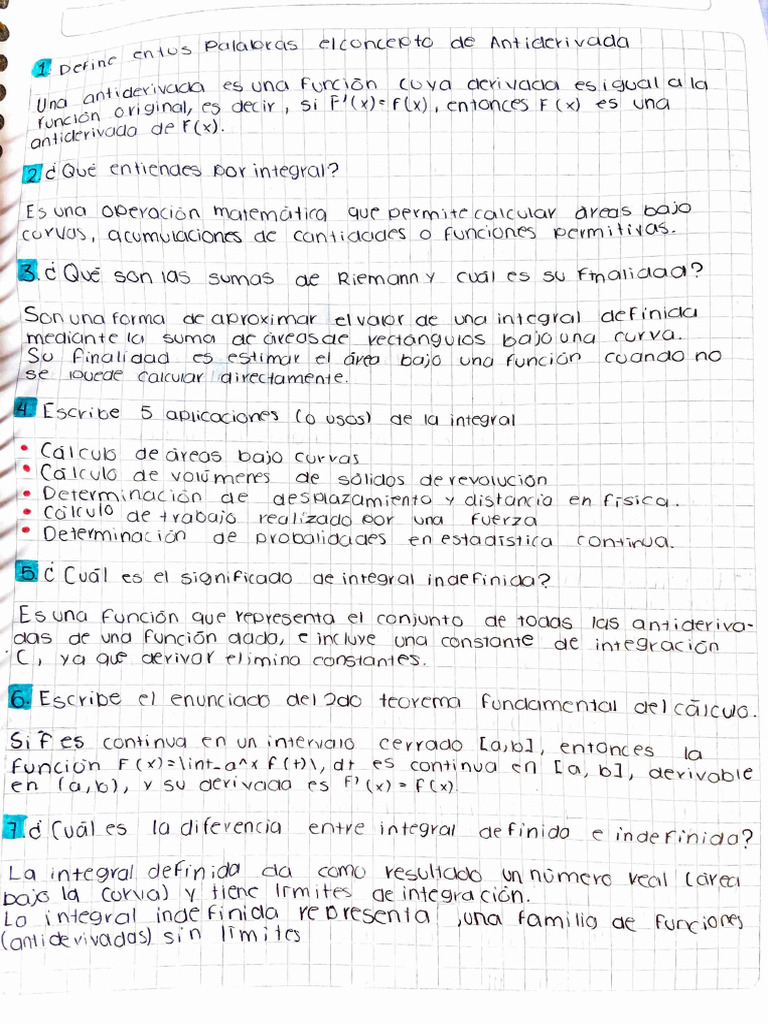 1. Define entus Palabras elconcepto de Antiderivada
Una antiderivada es una función cuya derivada es igual a la
función original, es decir, si F'(x)=f(x), entonces F(x) es una
antiderivada de F(x).
2. ¿Qué entiendes por integral?
Es una operación matemática que permite calcular áreas bajo
curvas, acumulaciones de cantidades o funciones permitivas.
3. ¿Qué son las sumas de Riemann y cuál es su finalidad?
Son una forma de aproximar el valor de una integral definida
mediante la suma de áreas de rectángulos bajo una curva.
Su finalidad es estimar el área bajo una función cuando no
se puede calcular directamente.
4. Escribe 5 aplicaciones (o usos) de la integral
• Cálculo de áreas bajo curvas
• Cálculo de volúmenes de sólidos de revolución
• Determinación de desplazamiento y distancia en física.
• Cálculo de trabajo realizado por una fuerza
• Determinación de probalidades en estadística continua.
5. ¿Cuál es el significado de integral indefinida?
Es una función que representa el conjunto de todas las antideriva-
das de una función dada, e incluye una constante de integración
C, ya que derivar elimina constantes.
6. Escribe el enunciado del 2do teorema fundamental del cálculo.
Si f es continua en un intervalo cerrado [a,b], entonces la
función F(x)=\int_a^x f(t)\, dt es continua en [a, b], derivable
en (a,b), y su derivada es F'(x)=f(x)
7. ¿Cuál es la diferencia entre integral definida e indefinida?
La integral definida da como resultado un número real (área
bajo la curva) y tiene límites de integración.
La integral indefinida representa ,una familia de funciones
(antiderivadas) sin límites